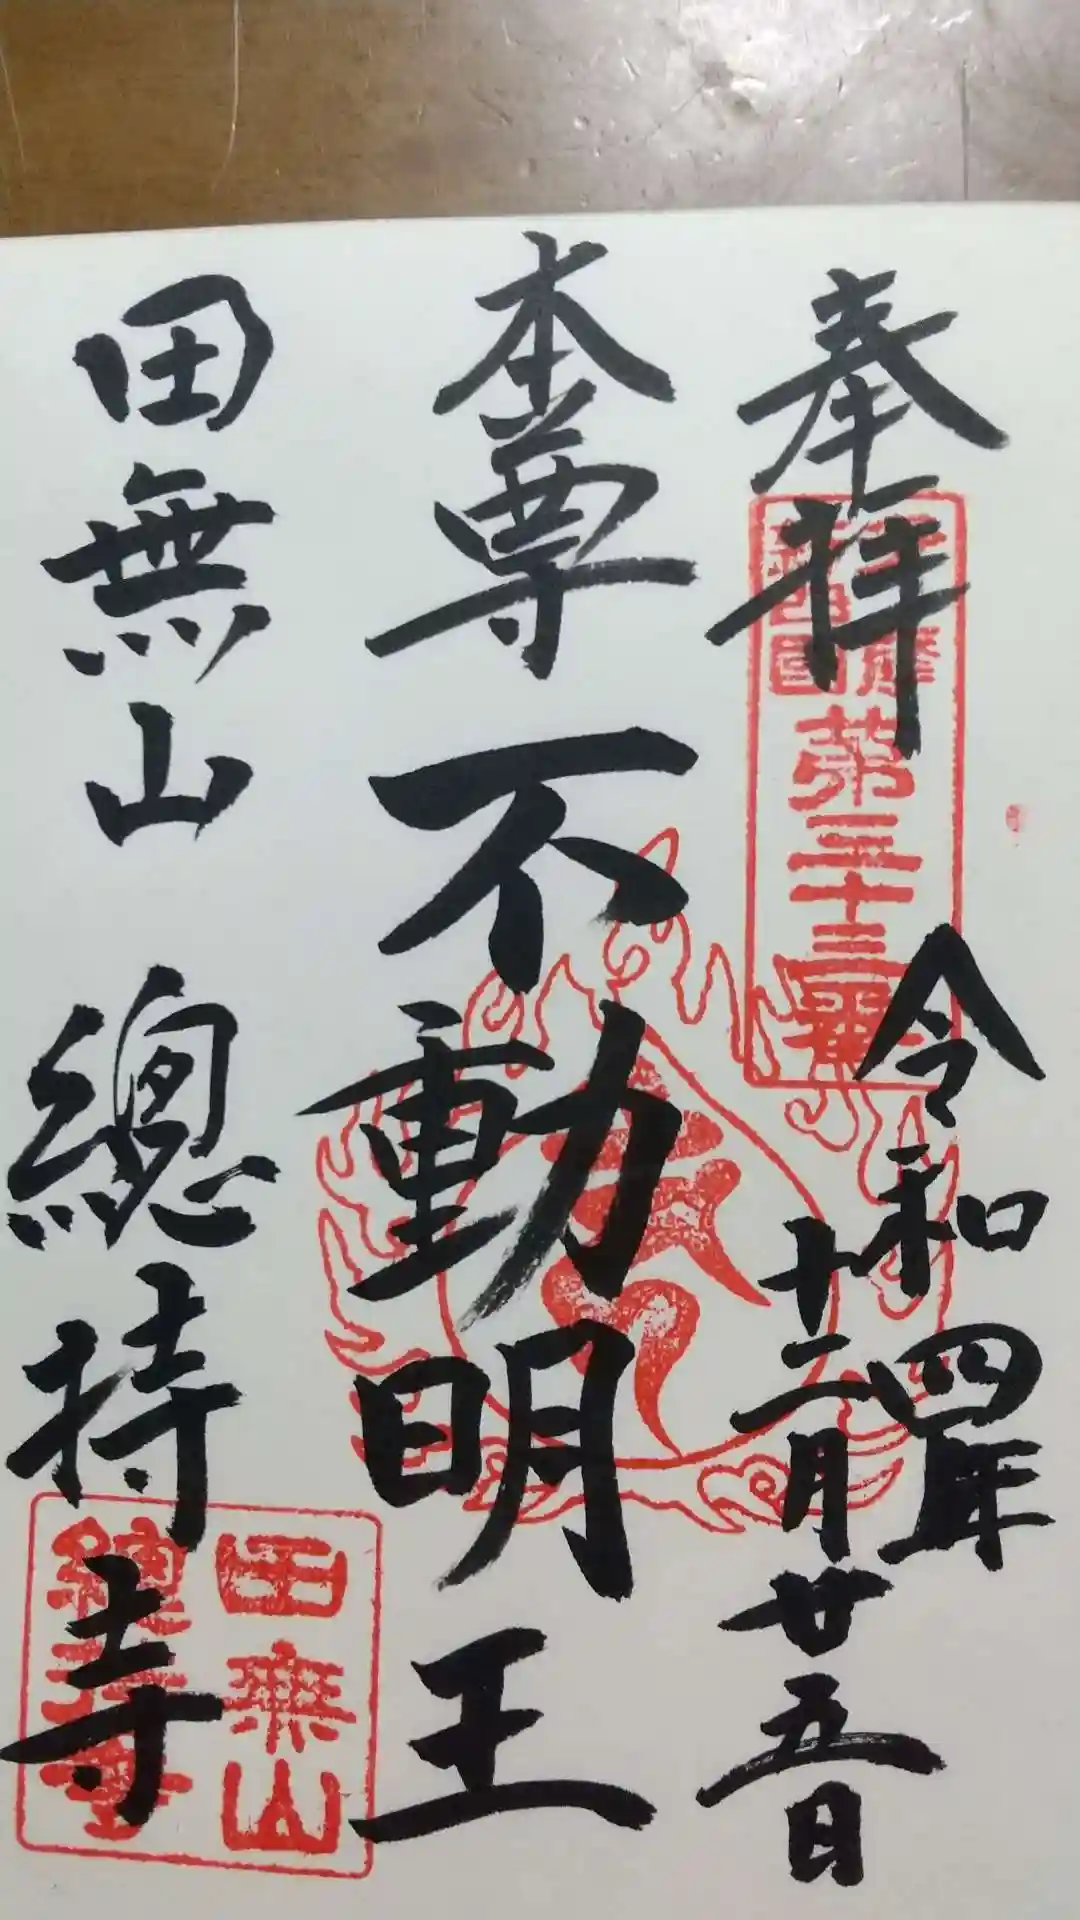 奉拝
令和四年
十二月廿五日
第三十三番
本尊不動明王
田無山 總持寺
田無山
總持寺